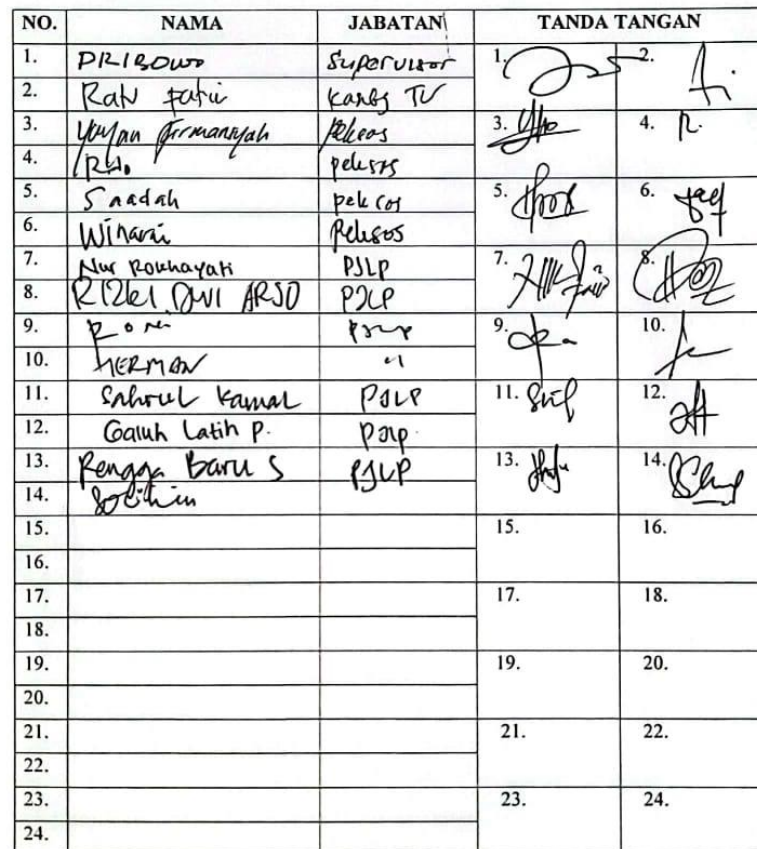 NO. NAMA JABATAN TANDA TANGAN
1. PRIBOWO Supervisor 1. 2.
2. Ratu
3. Yayan Firmansyah Peksos 3. 4. R.
4. peksos
5. Saadah peksos 5. 6.
6. Winarni Peksos
7. Nur Rokhayati PJLP 7. 8.
8. RIZKI DWI ARSO PJLP
9. Roni PJLP 9. 10.
10. HERMAN
11. Sahrul Kamal PJLP 11. 12.
12. Galuh Latih P. PJLP
13. Rengga Baru S PJLP 13. 14.
14. Solihin
15. 15. 16.
16.
17. 17. 18.
18.
19. 19. 20.
20.
21. 21. 22.
22.
23. 23. 24.
24.